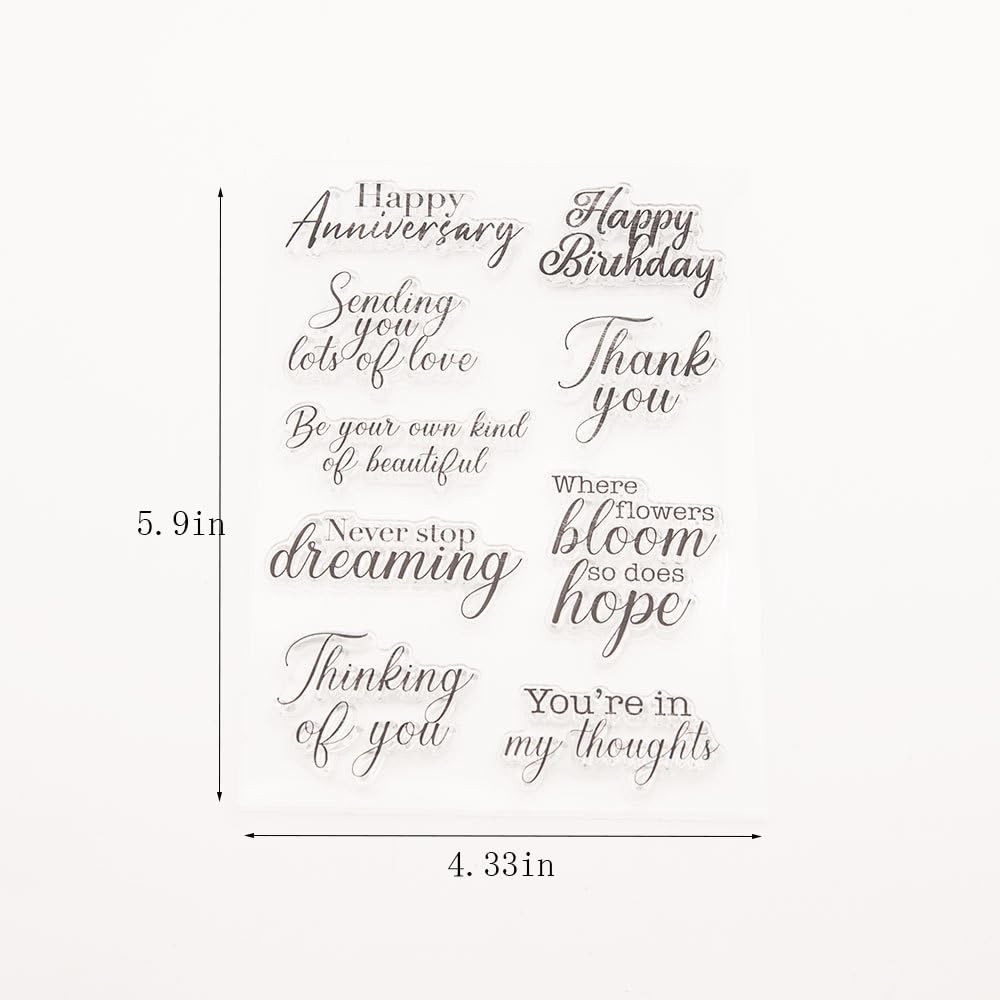 Happy
Anniversary
Happy
Birthday
Sending
you
lots of love
Thank
you
Be your own kind
of beautiful
Where
flowers
bloom
so does
hope
Never stop
dreaming
Thinking
of you
You're in
my thoughts
5.9in
4.33in